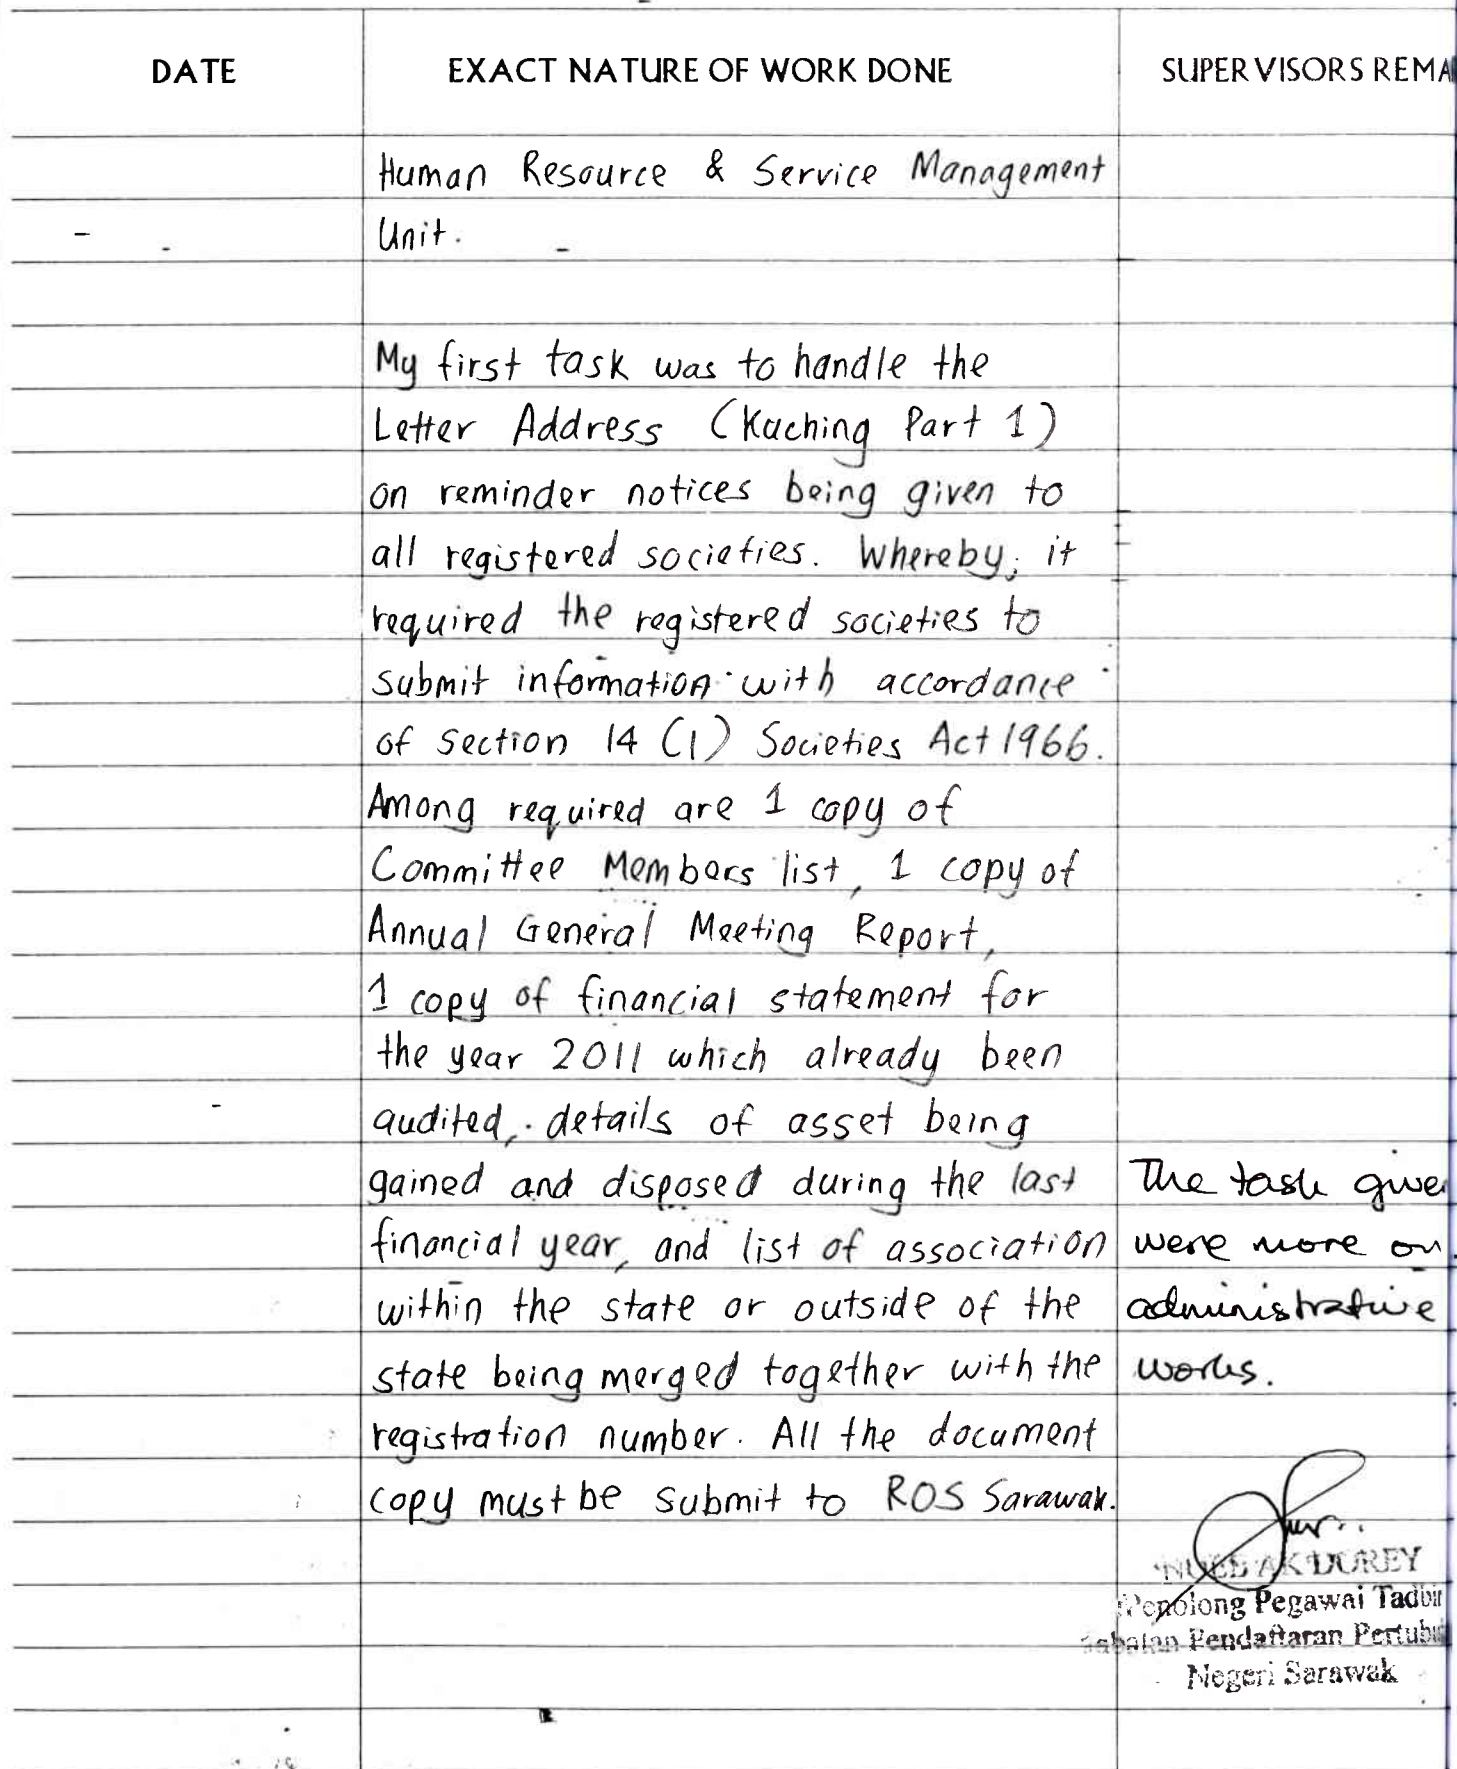 DATE EXACT NATURE OF WORK DONE SUPERVISORS REMA
Human Resource & Service Management
Unit.
My first task was to handle the
Letter Address (Kuching Part 1)
on reminder notices being given to
all registered societies. Whereby, it
required the registered societies to
submit information with accordance
of section 14 (1) Societies Act 1966.
Among required are 1 copy of
Committee Members list, 1 copy of
Annual General Meeting Report,
1 copy of financial statement for
the year 2011 which already been
audited, details of asset being
gained and disposed during the last
financial year, and list of association
within the state or outside of the
state being merged together with the
registration number. All the document
copy must be submit to ROS Sarawak.
The task give
were more on
administrative
works.
AK DUREY
Penolong Pegawai Tadbir
Jabatan Pendaftaran Pertubu
Negeri Sarawak